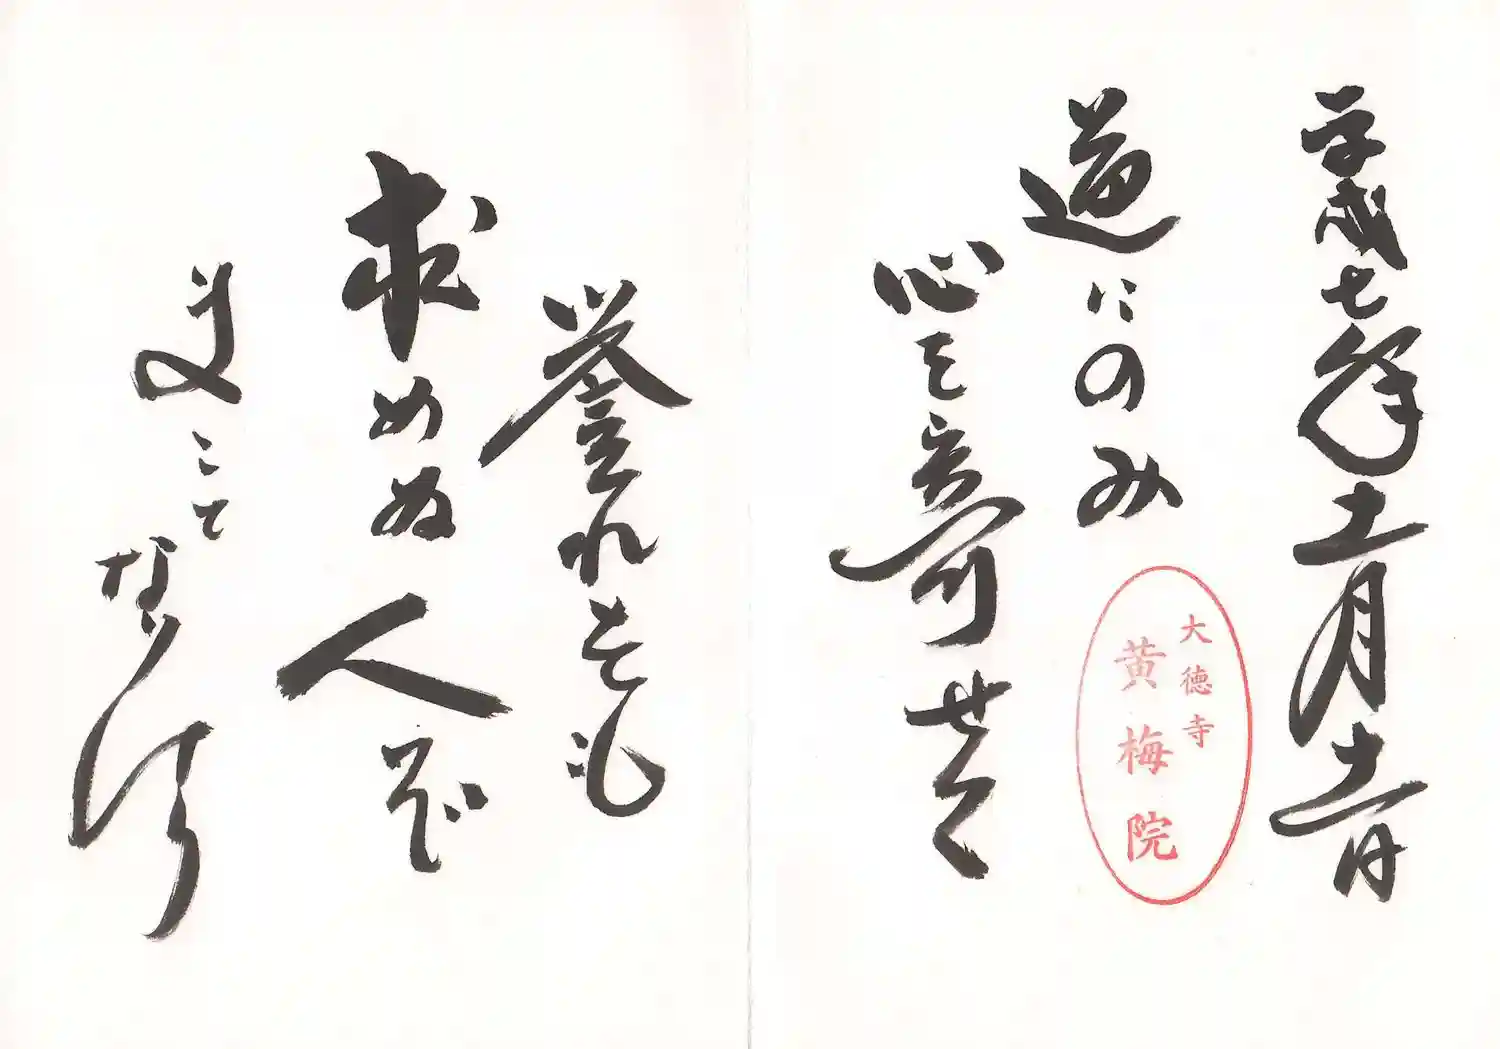 平成七年十一月十一日
道にのみ
心を寄せて
大徳寺
黄梅院
誉れをも
求めぬ人ぞ
まことなり